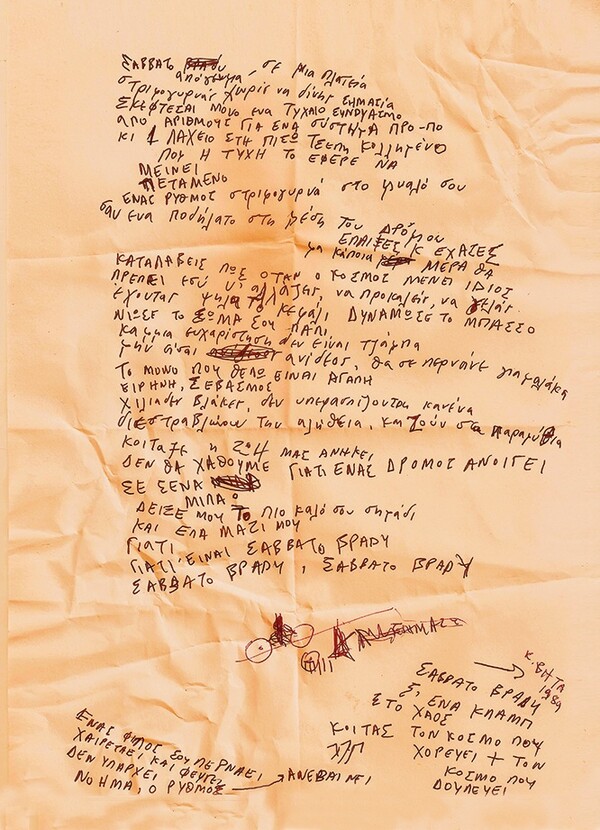 ΣΑΒΒΑΤΟ απόγευμα, σε μια πλατεία
στριφογυρνάς χωρίς να δίνης σημασία
ΣΚΕΦΤΕΣΑΙ ΜΟΝΟ ΕΝΑ ΤΥΧΑΙΟ ΣΥΝΔΥΑΣΜΟ
απο ΑΡΙΘΜΟΥΣ ΓΙΑ ΕΝΑ ΣΥΣΤΗΜΑ ΠΡΟ-ΠΟ
ΚΙ 1 ΛΑΧΕΙΟ ΣΤΗ ΠΙΣΩ ΤΣΕΠΗ ΚΟΛΛΗΜΕΝΟ
ΠΟΥ Η ΤΥΧΗ ΤΟ ΕΦΕΡΕ ΝΑ
ΜΕΙΝΕΙ
ΠΕΤΑΜΕΝΟ
ΕΝΑΣ ΡΥΘΜΟΣ στριφογυρνά στο μυαλό σου
σαν ενα ποδήλατο στη μέση Του ΔΡΟΜΟΥ
ΕΠΑΙΞΕΣ Κ ΕΧΑΣΕΣ
μα κάποια ΜΕΡΑ ΘΑ
ΚΑΤΑΛΑΒΕΙΣ ΠΩΣ ΟΤΑΝ Ο ΚΟΣΜΟΣ ΜΕΝΕΙ ΙΔΙΟΣ
ΠΡΕΠΕΙ εσύ ν' αλλάζεις, να προκαλείς, να γελάς
έχοντας ψηλά το κεφάλι ΔΥΝΑΜΩΣΕ ΤΟ ΜΠΑΣΣΟ
ΝΙΩΣΕ ΤΟ ΣΩΜΑ ΣΟΥ ΠΑΛΙ
Καμμια ευχαρίστηση δεν είναι τζάμπα
μην είσαι ανίδεος, θα σε περνάνε για μαλάκα
ΤΟ ΜΟΝΟ ΠΟΥ ΘΕΛΩ ΕΙΝΑΙ ΑΓΑΠΗ
ΕΙΡΗΝΗ, ΣΕΒΑΣΜΟΣ
Χιλιάδες βλάκες, δεν υπερασπίζουνται κανένα
διαστρεβλώνουν την αλήθεια, και ζούν στα παραμύθια
Κοίταξε η ζωή ΜΑΣ ΑΝΗΚΕΙ
ΔΕΝ ΘΑ ΧΑΘΟΥΜΕ ΓΙΑΤΙ ΕΝΑΣ ΔΡΟΜΟΣ ΑΝΟΙΓΕΙ
ΣΕ ΣΕΝΑ
ΜΙΛΑΩ
ΔΕΙΞΕ ΜΟΥ ΤΟ ΠΙΟ ΚΑΛΟ ΣΟΥ σημάδι
ΚΑΙ ΕΛΑ ΜΑΖΙ ΜΟΥ
ΓΙΑΤΙ
ΓΙΑΤΙ ΕΙΝΑΙ ΣΑΒΒΑΤΟ ΒΡΑΔΥ
ΣΑΒΒΑΤΟ ΒΡΑΔΥ, ΣΑΒΒΑΤΟ ΒΡΑΔΥ
Κ. ΒΗΤΑ
1989
ΣΑΒΒΑΤΟ ΒΡΑΔΥ
Σ' ΕΝΑ ΚΛΑΜΠ
ΣΤΟ ΧΑΟΣ
ΚΟΙΤΑΣ ΤΟΝ ΚΟΣΜΟ ΠΟΥ
ΧΟΡΕΥΕΙ + ΤΟΝ
ΚΟΣΜΟ ΠΟΥ
ΔΟΥΛΕΥΕΙ
ΕΝΑΣ ΦΙΛΟΣ ΣΟΥ ΠΕΡΝΑΕΙ
ΧΑΙΡΕΤΑΕΙ ΚΑΙ ΦΕΥΓΕΙ
ΔΕΝ ΥΠΑΡΧΕΙ
ΝΟΗΜΑ, Ο ΡΥΘΜΟΣ → ΑΝΕΒΑΙΝΕΙ